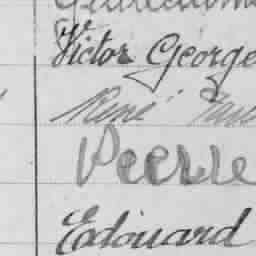 Victor George
René
Pierre
Edouard